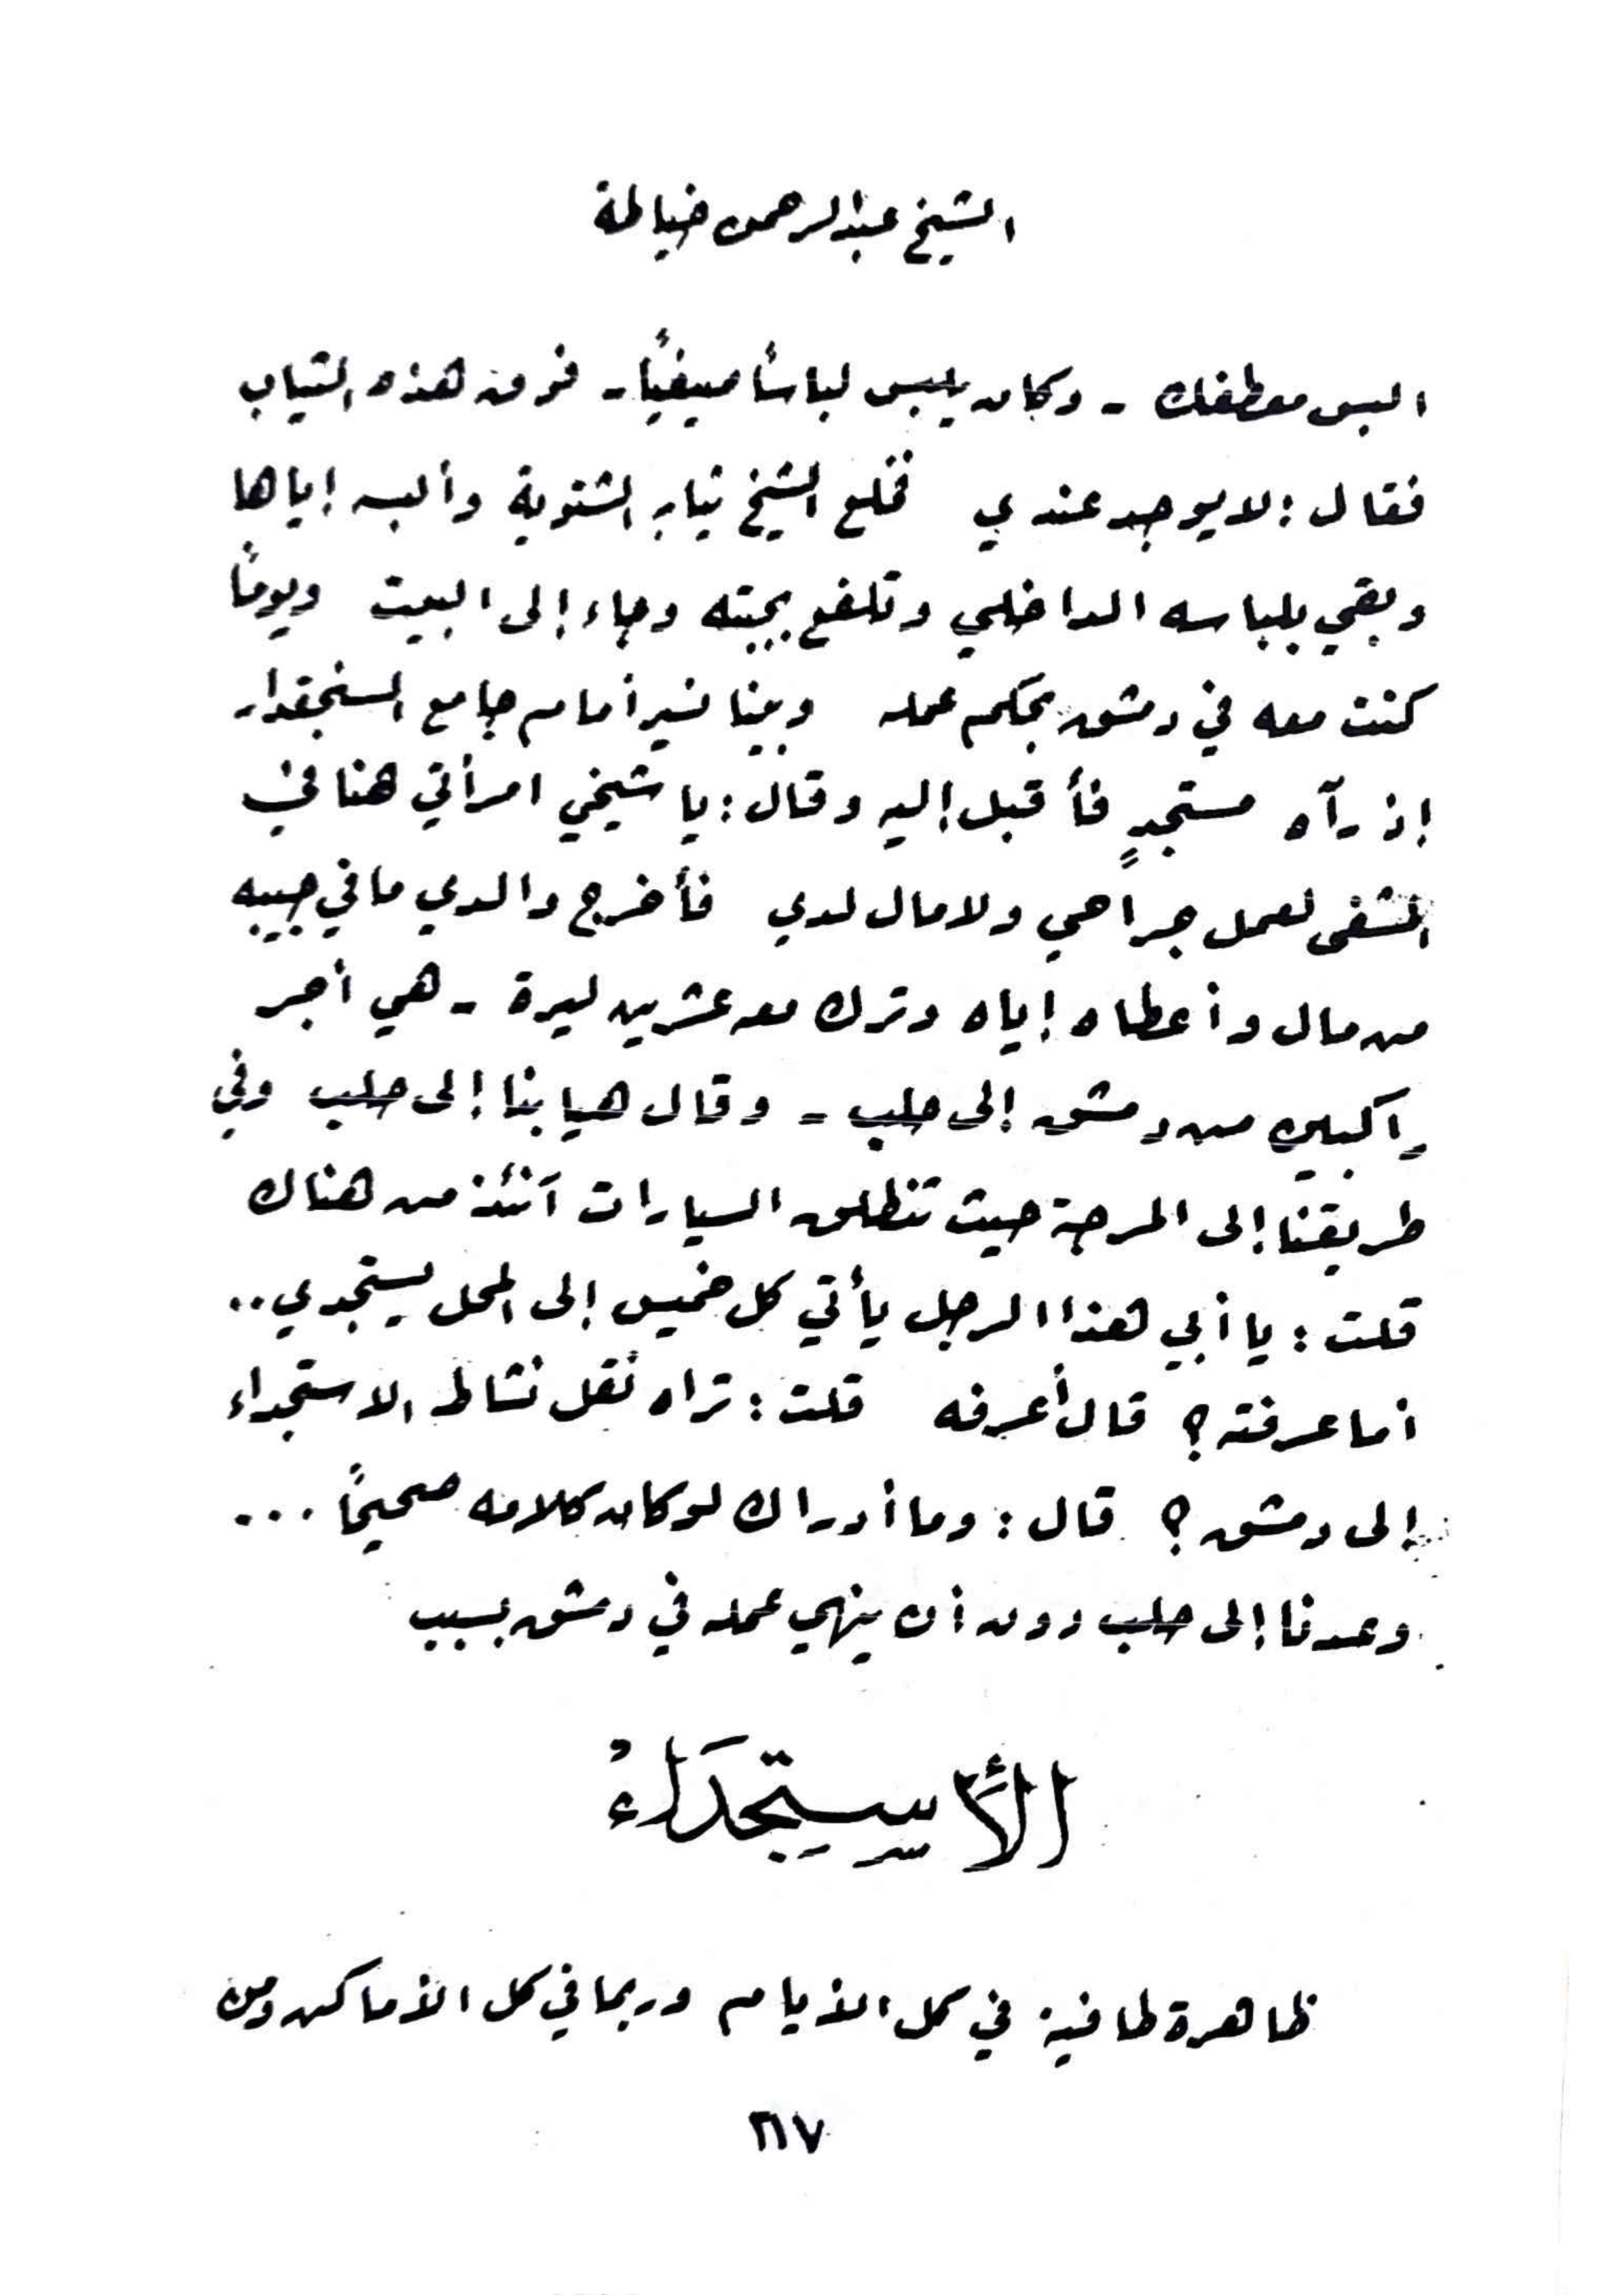 الشيخ عبدالرحمن خياطة
البس معطفك - وكان يلبس لباساً صيفياً - فوق هذه الثياب
فقال : لا يوجد عندي فخلع الشيخ ثيابه الشتوية وألبسه إياها
وبقي بلباسه الداخلي وتلفع بجبته وجاء إلى البيت ويوماً
كنت معه في دمشق بحكم عمله وبينا نسير أمام جامع السنجقدار
إذ رآه مستجدٍ فأقبل إليه وقال : يا شيخي امرأتي هنا في
المشفى لعمل جراحي ولا مال لدي فأخرج والدي ما في جيبه
من مال وأعطاه إياه وترك معه عشرين ليرة - هي أجر
راكبين من دمشق إلى حلب - وقال هيا بنا إلى حلب وفي
طريقنا إلى المرجة حيث تنطلق السيارات آنئذ من هناك
قلت : يا أبي هذا الرجل يأتي كل خميس إلى المحل يستجدي ..
أما عرفته ؟ قال أعرفه قلت : تراه نقل نشاط الاستجداء
إلى دمشق ؟ قال : وما أدراك لو كان كلامه صحيحاً ...
وعدنا إلى حلب دون أن ينهي عمله في دمشق بسبب
الأستجداء
ظاهرة طافية في كل الأيام وربما في كل الأماكن ومن
٢١٧